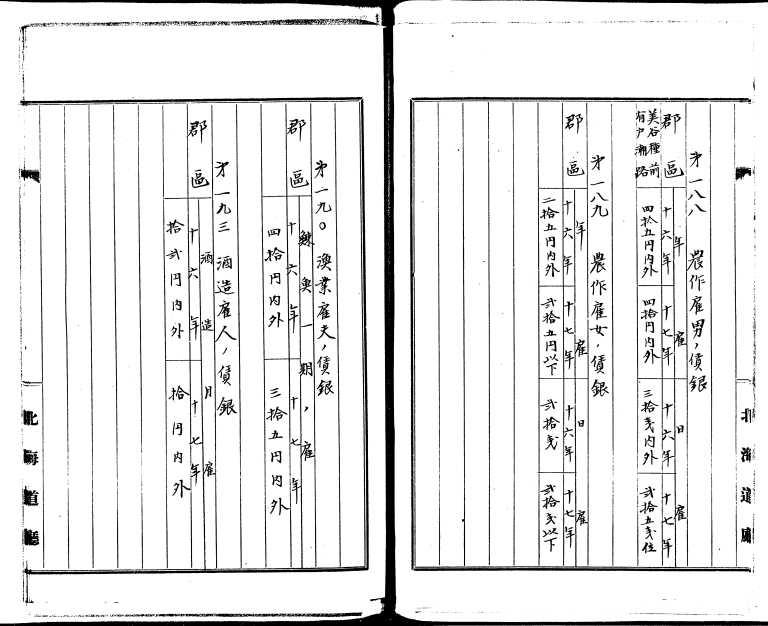 第一八八 農作雇男ノ賃銀
郡區 年雇 日雇
十六年 十七年 十六年 十七年
美谷種前
有戸潮路
四拾五円内外 四拾円内外 三拾戔内外 弐拾五戔位
第一八九 農作雇女ノ賃銀
郡區 年雇 日雇
十六年 十七年 十六年 十七年
二拾五円内外 弐拾五円以下 弐拾戔 弐拾戔以下
北海道廳
第一九〇 漁業雇夫ノ賃銀
郡區 鰊魚一期ノ雇
十六年 十七年
四拾円内外 三拾五円内外
第一九三 酒造雇人ノ賃銀
郡區 酒造月雇
十六年 十七年
拾弐円内外 拾円内外
北海道廳